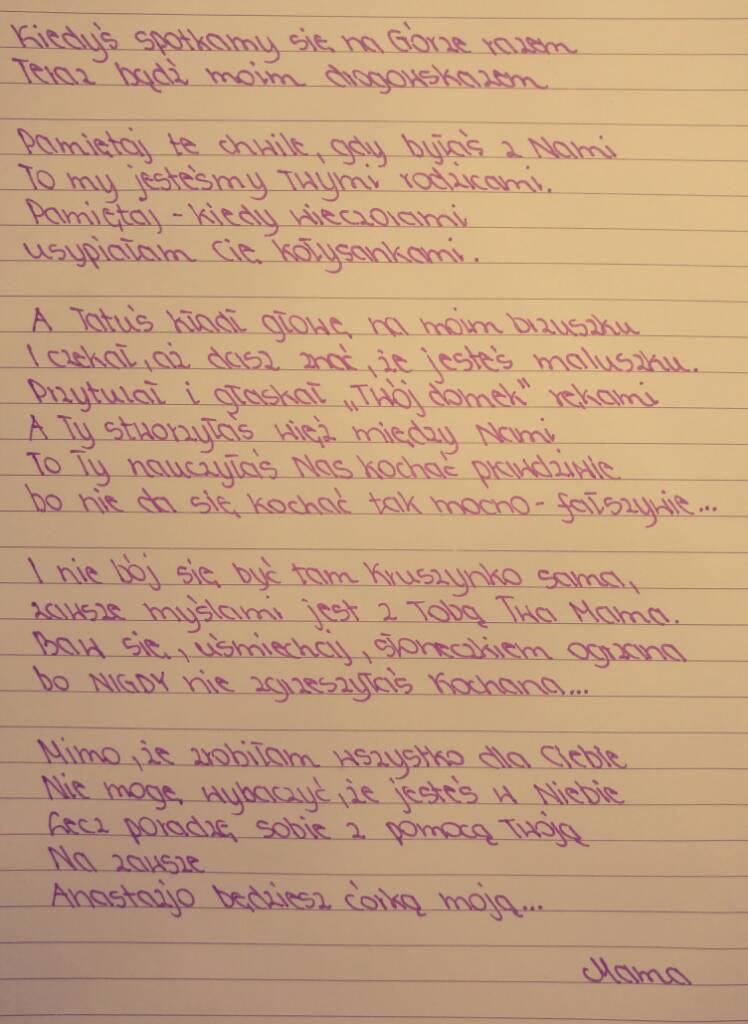 Kiedyś spotkamy się na Górze razem
Teraz bądź moim drogowskazem
Pamiętaj te chwile, gdy byłaś z Nami
To my jesteśmy Twymi rodzicami.
Pamiętaj - kiedy wieczorami
usypiałam Cię kołysankami.
A Tatuś kładł głowę na moim brzuszku
I czekał, aż dasz znać, że jesteś maluszku.
Przytulał i głaskał „Twój domek" rękami
A Ty stworzyłaś więź między Nami
To Ty nauczyłaś Nas kochać prawdziwie
bo nie da się kochać tak mocno - fałszywie...
I nie bój się być tam Kruszynko sama,
zawsze myślami jest z Tobą Twa Mama.
Baw się, uśmiechaj, słoneczkiem ogrzana
bo NIGDY nie zgrzeszyłaś Kochana...
Mimo, że zrobiłam wszystko dla Ciebie
Nie mogę wybaczyć, że jesteś w Niebie
Lecz poradzę sobie z pomocą Twoją
Na zawsze
Anastazjo będziesz córką moją...
Mama